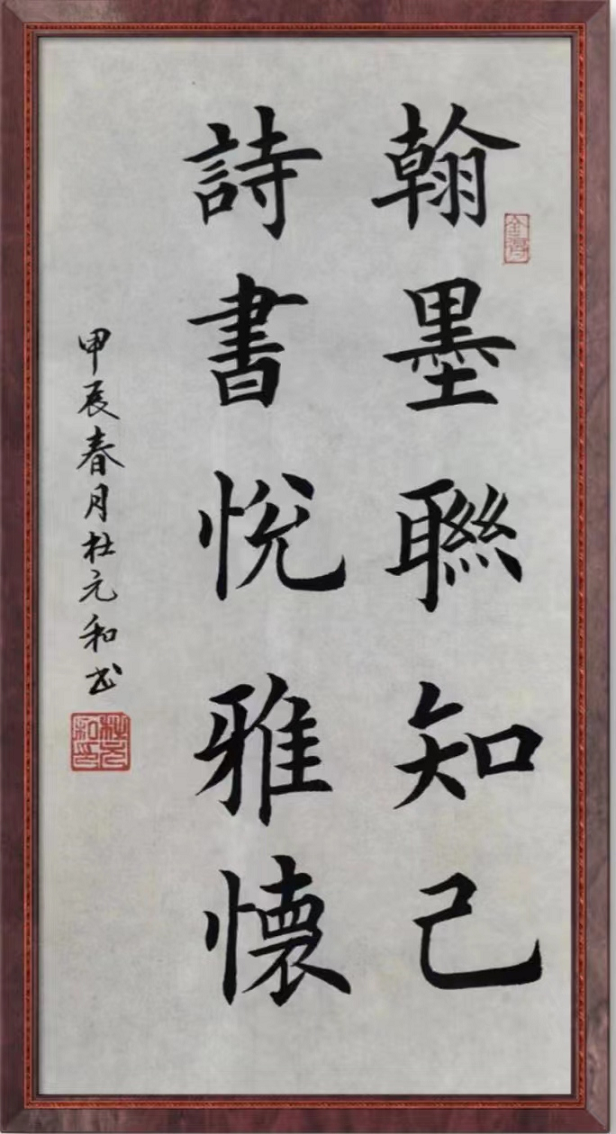 翰墨聯知己
詩書悅雅懷
甲辰春月杜元和书
杜元和印